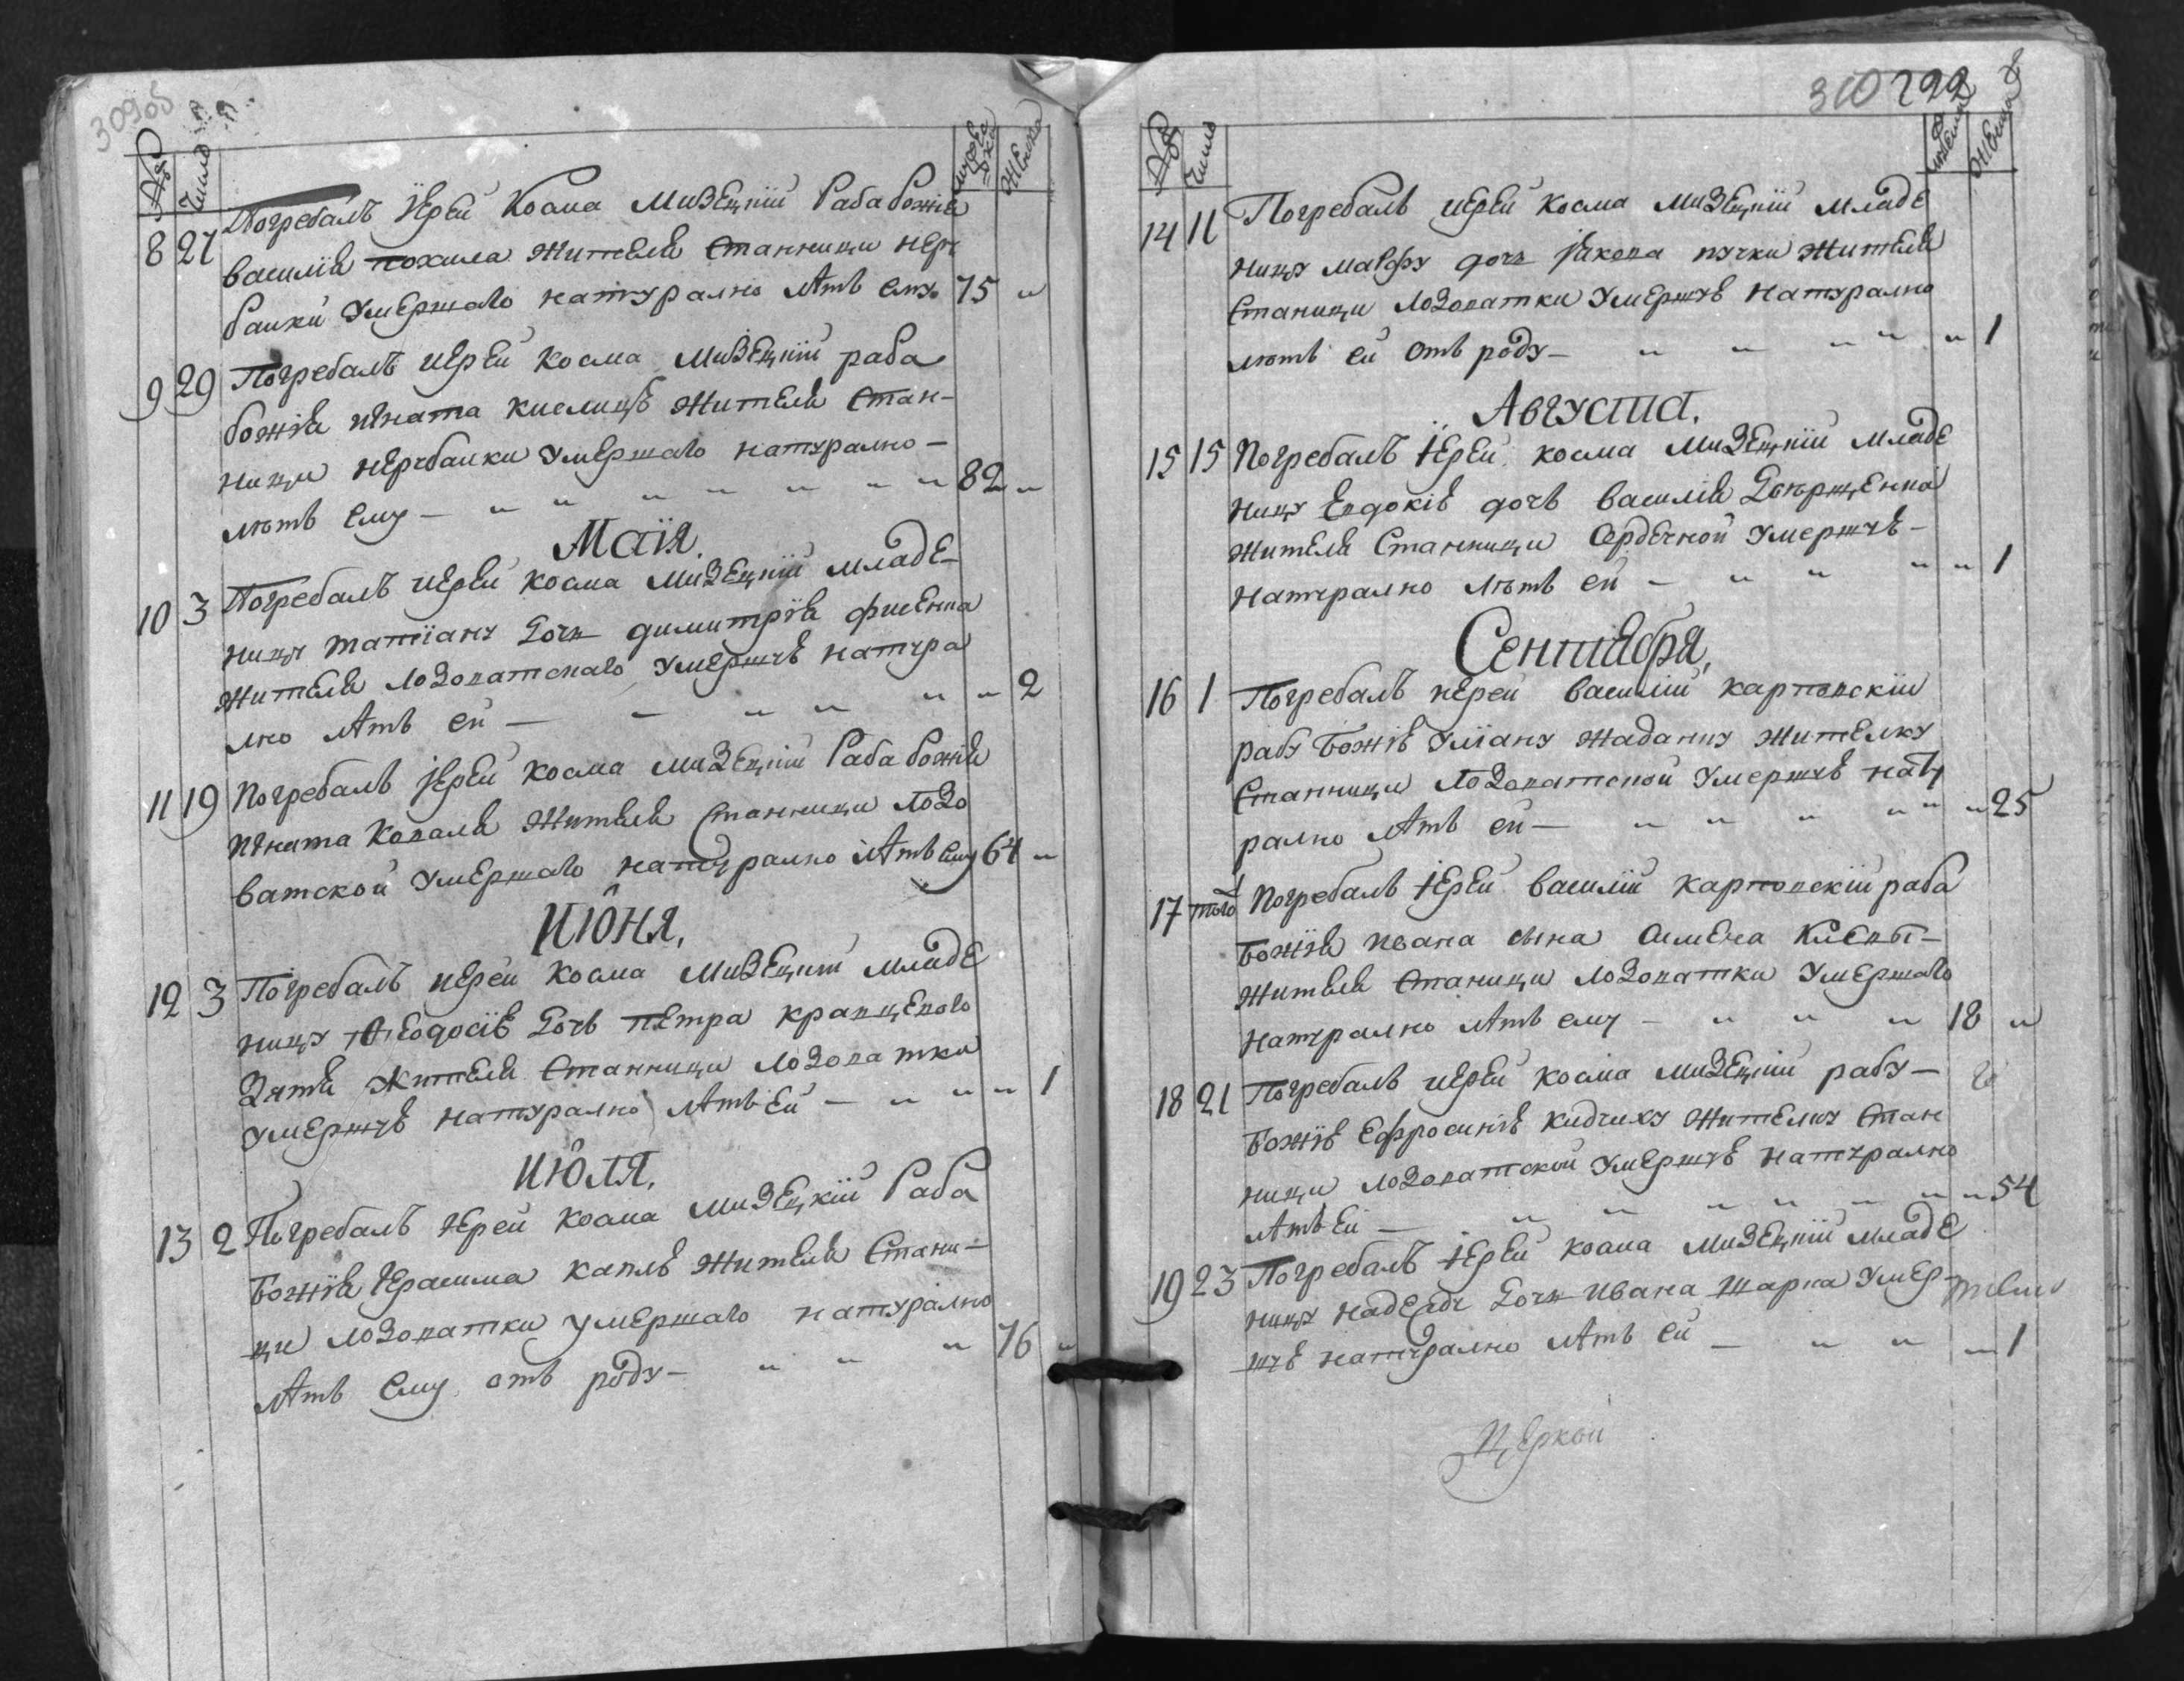 309об
№ Число мужеска Женска
8 27 Погребалъ Іерей Косма Мизецкій Раба божія
василія похила Жителя Станници нерч
баики Умершаго натурално лѣтъ ему 75 „
9 29 Погребалъ иерей косма Мизецкій раба
божія игната кислицѣ Жителя Стан-
ници нерчбаики Умершаго натурално -
лѣтъ ему - „ „ „ „ „ „ 82 „
Маія.
10 3 Погребалъ иерей косма мизецкій младе-
ницу татіану дочь димитрія фисенка
жителя лозоватскаго умершуѣ натура
лно лѣтъ ей - - „ „ „ „ 2
11 19 Погребалъ іерей косма мизецкій Раба божія
игната Коваля Жителя Станници Лозо
ватской Умершаго натурално лѣтъ ему 64 „
Июня.
12 3 Погребалъ иерей косма Мизецкій младе
ницу Ѳеодосіѣ дочь петра кравцевого
зятя Жителя Станници Лозоватки
Умершуѣ натурално лѣтъ Ей - „ „ „ 1
Июля.
13 2 Погребалъ иерей косма Мизецкій Раба
Божія Герасима каплѣ жителя Стани-
ци лозоватки умершаго натурално
лѣтъ ему отъ роду - „ „ „ 76 „
310 299
№ Число мужеска Женска
14 11 Погребалъ иерей косма мизецкій младе
ницу марфу дочь якова пучки жителя
Станици лозоватки Умершуѣ натурално
лѣтъ ей отъ роду - „ „ „ „ „ 1
Августа.
15 15 Погребалъ Іерей косма Мизецкій младе
ницу Евдокіѣ дочь василія
жителя Станници Сердечной Умершуѣ -
натурално лѣтъ ей - „ „ „ „ 1
Сентября,
16 1 Погребалъ иерей василій карповскій
рабу Божіѣ Уліану жаданну жителку
Станници Лозоватской Умершуѣ нату
рално лѣтъ ей - „ „ „ „ „ „ 25
17 того Погребалъ іерей василій карповскій раба
Божія ивана сына семена
жителя Станици лозоватки Умершаго
натурално лѣтъ ему - „ „ „ 18 „
18 21 Погребалъ иерей косма мизецкій рабу -
Божіѣ Ефросиніѣ кидчиху жителку Стан
ници лозоватской умершуѣ натурално
лѣтъ Ей - „ „ „ „ „ „ 54
19 23 Погребалъ іерей косма мизецкій младе
ницу надежду дочь ивана шарпа Умер-
шуѣ натурално лѣтъ ей - „ „ „ 1
Церкви